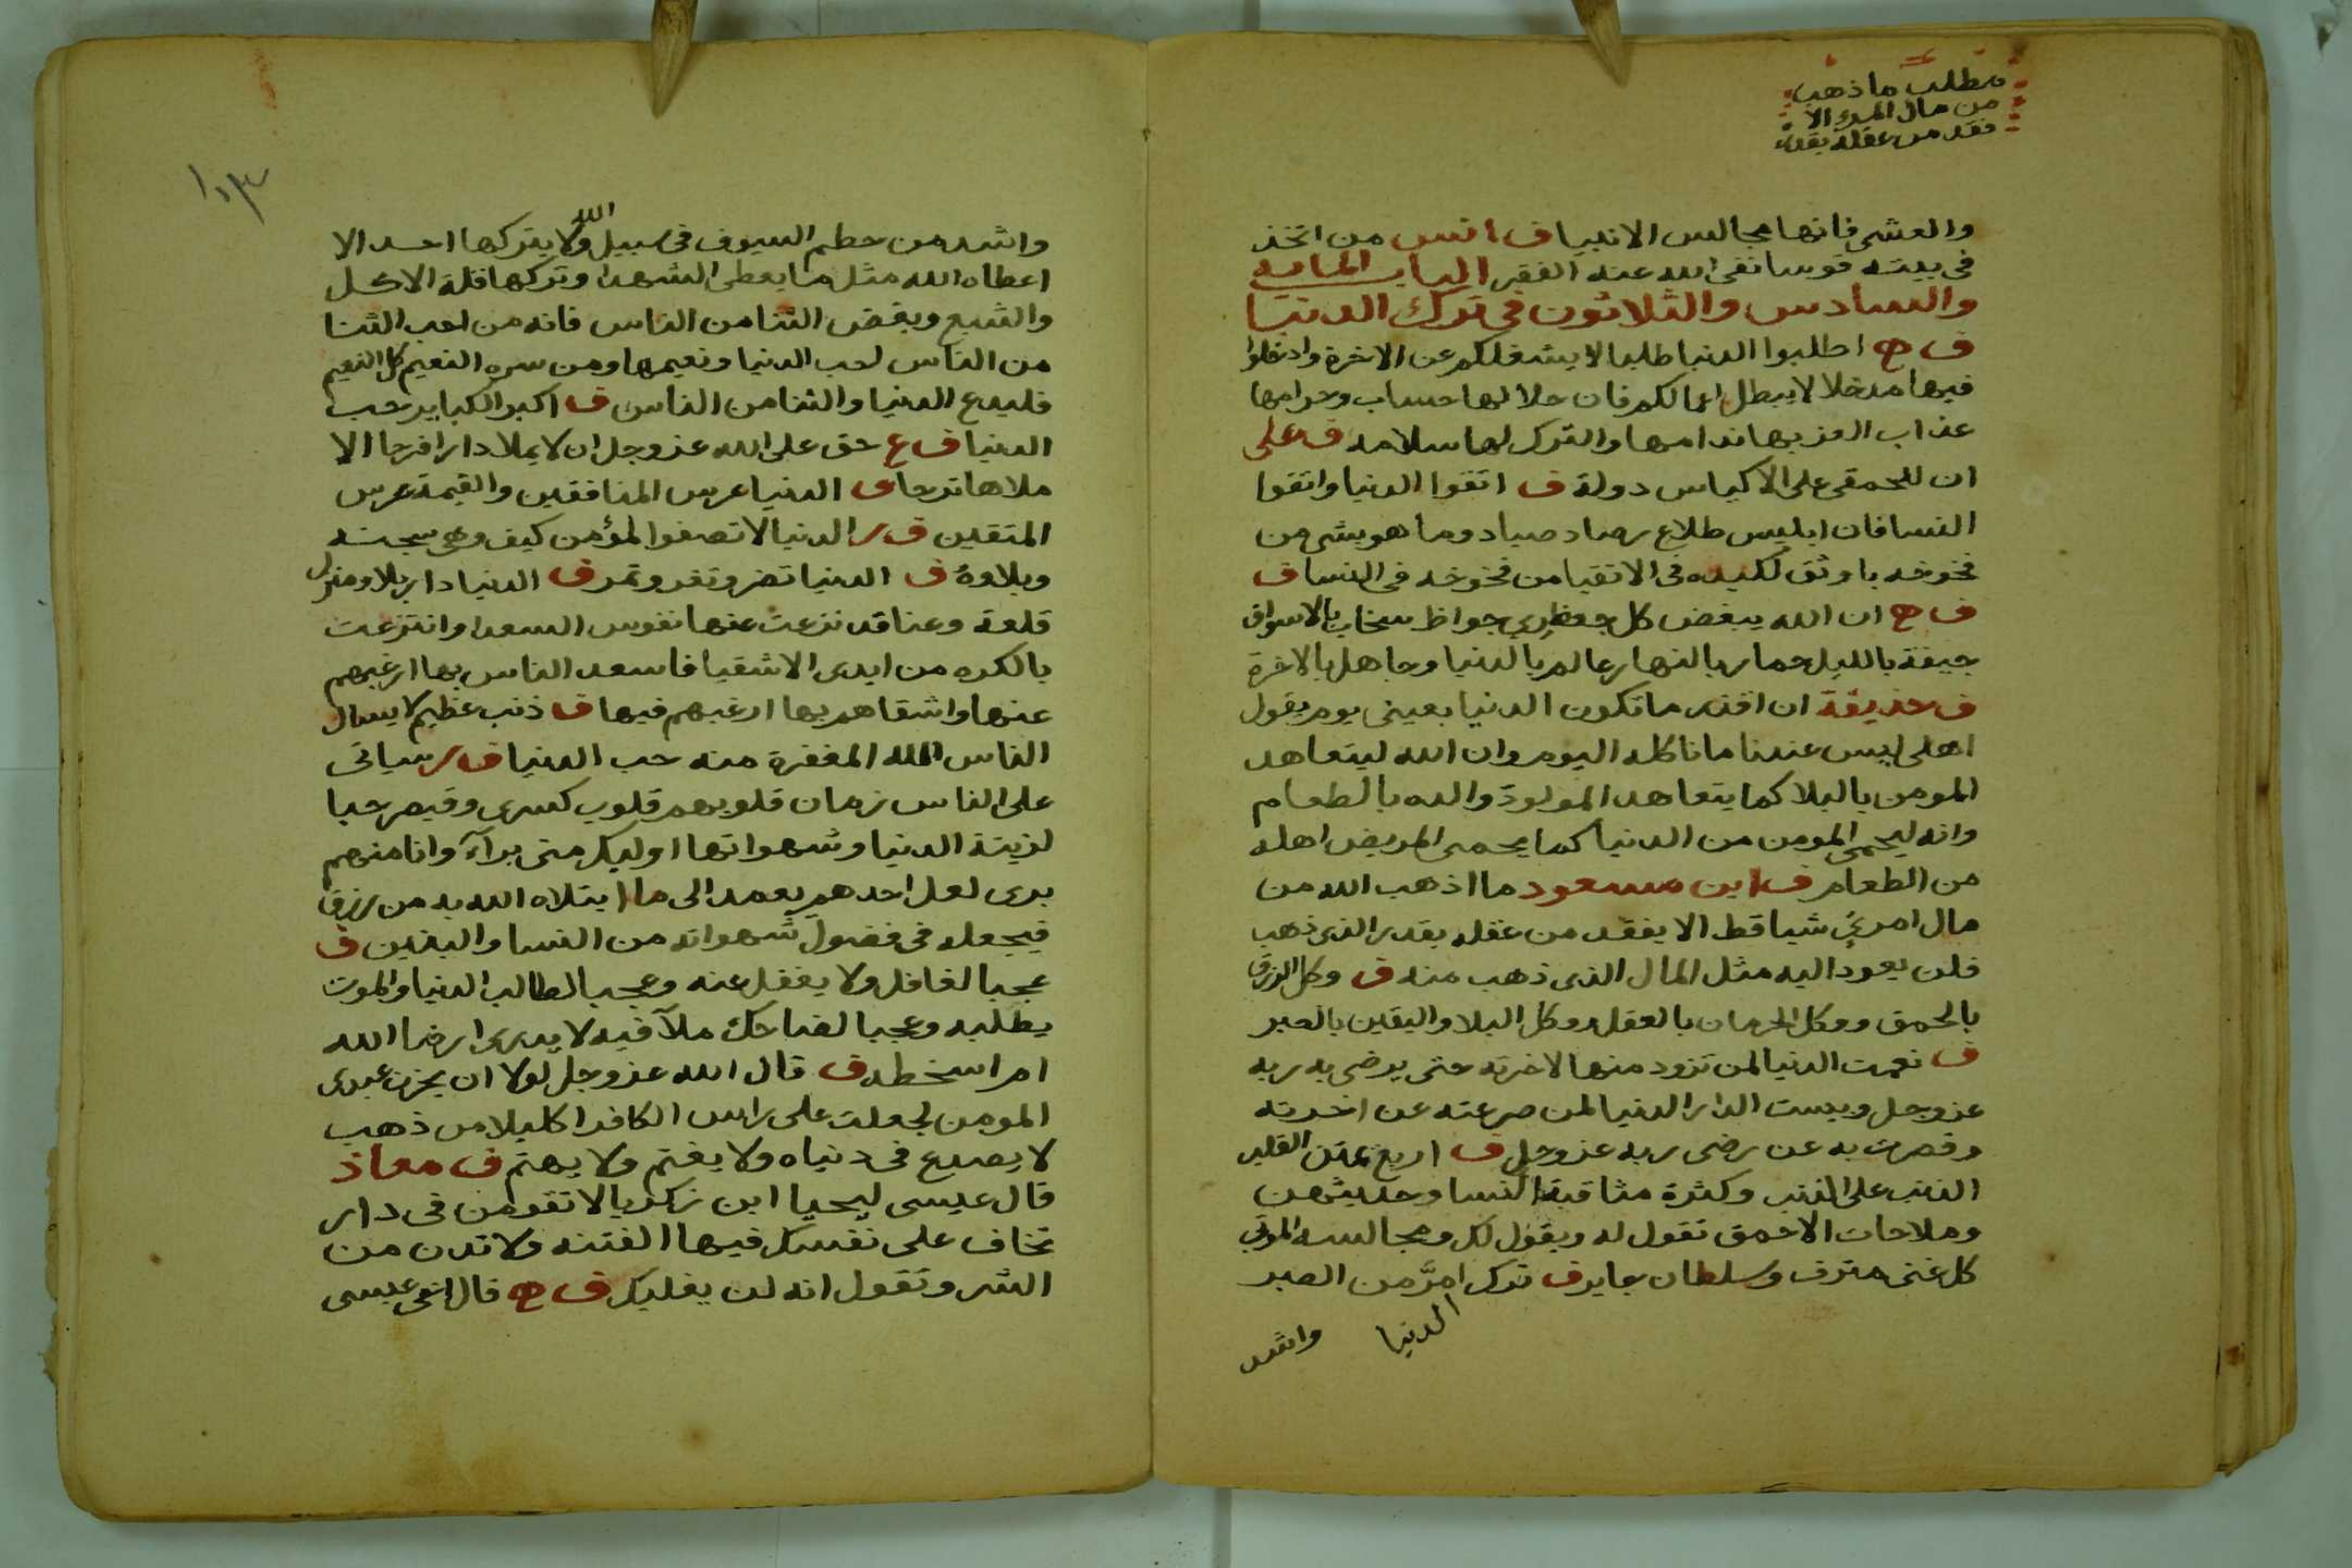 مطلب ما ذهب
من مال المرء الا
فقد من عقله بقدره
والعشي فانها مجالس الانبيا ف انس من اتخذ
في بيته قوسا نفى الله عنه الفقر الباب
والسادس والثلاثون في ترك الدنيا
ف ح اطلبوا الدنيا طلبا لا يشغلكم عن الاخرة وادخلوا
فيها مدخلا لا يبطل اعمالكم فان حلالها حساب وحرامها
عذاب بها ندامها والترك لها سلامه ف على
ان للحمقى على الاكياس دولة ف اتقوا الدنيا واتقوا
النسا فان ابليس طلاع رصاد صياد وما هو بشي من
فخوخه باوثق لكيده في الاتقيا من فخوخه في النسا ف
ف ح ان الله يبغض كل جعظري جواظ سخاب بالاسواق
جيفة بالليل حمار بالنهار عالم بالدنيا وجاهل بالاخرة
ف حذيفة ان اقر ما تكون الدنيا بعيني يوم يقول
اهلي ليس عندنا ما ناكله اليوم وان الله ليتعاهد
المومن بالبلا كما يتعاهد المولود والده بالطعام
وانه ليحمي المومن من الدنيا كما يحمي المريض اهله
من الطعام ف ابن مسعود ما اذهب الله من
مال امرئ شيا قط الا يفقد من عقله بقدر الذى ذهب
فلن يعود اليه مثل المال الذى ذهب منه ف وكل الرزق
بالحمق ووكل الحرمان بالعقل ووكل البلا واليقين بالصبر
ف نعمت الدنيا لمن تزود منها لاخرته حتى يرضى به ربه
عزوجل وبيست الدار الدنيا لمن صرعته عن اخرته
وقصرت به عن رضى ربه عزوجل ف اربع يمتن القلب
الذنب على الذنب وكثرة مثاقبة النسا وحديثهن
وملاحات الاحمق تقول له ويقول لك ومجالسه الموتي
كل غنى مترف وسلطان جاير ف ترك امرّ من الصبر
الدنيا
واشد
١٠٣
واشد من حطم السيوف فى سبيل الله ولا يتركها احد الا
اعطاه الله مثل ما يعطى الشهدا وتركها قلة الاكل
والشبع وبغض الثنا من الناس فانه من احب الثنا
من الناس لحب الدنيا ونعيمها ومن سره النعيم كل النعيم
فليدع الدنيا والثنا من الناس ف اكبر الكباير حب
الدنيا ف ع حق على الله عزوجل ان لا يملا دارا فرحا الا
ملاها ترحا ف الدنيا عرس المنافقين والقيمة عرس
المتقين ف ر الدنيا لا تصفوا لمؤمن كيف وهى سجنه
وبلاوه ف الدنيا تضر وتغر وتمر ف الدنيا دار بلا ومنزل
قلعة وعنا قد نزعت عنها نفوس السعدا وانتزعت
بالكره من ايدى الاشقيا فاسعد الناس بها ارغبهم
عنها واشقاهم بها ارغبهم فيها ف ذنب عظيم لا يسال
الناس الله المغفرة منه حب الدنيا ف ر سياتى
على الناس زمان قلوبهم قلوب كسرى وقيصر حبا
لزينة الدنيا وشهواتها اوليك منى برآء وانا منهم
برى لعل احدهم يعمد الى ما ابتلاه الله به من رزق
فيجعله فى فضول شهواته من النسا والبنين ف
عجبا لغافل ولا يغفل عنه وعجبا لطالب الدنيا والموت
يطلبه وعجبا لضاحك ملآ فيه لا يدرى ارضا الله
ام اسخطه ف قال الله عزوجل لولا ان يحزن عبدى
المومن لجعلت على راس الكافر اكليلا من ذهب
لا يصدع فى دنياه ولا يغتم ولا يهتم ف معاذ
قال عيسى ليحيا ابن زكريا لا تقومن فى دار
تخاف على نفسك فيها الفتنه ولا تدن من
الشر وتقول انه لن يغلبك ف ح قال اخى عيسى